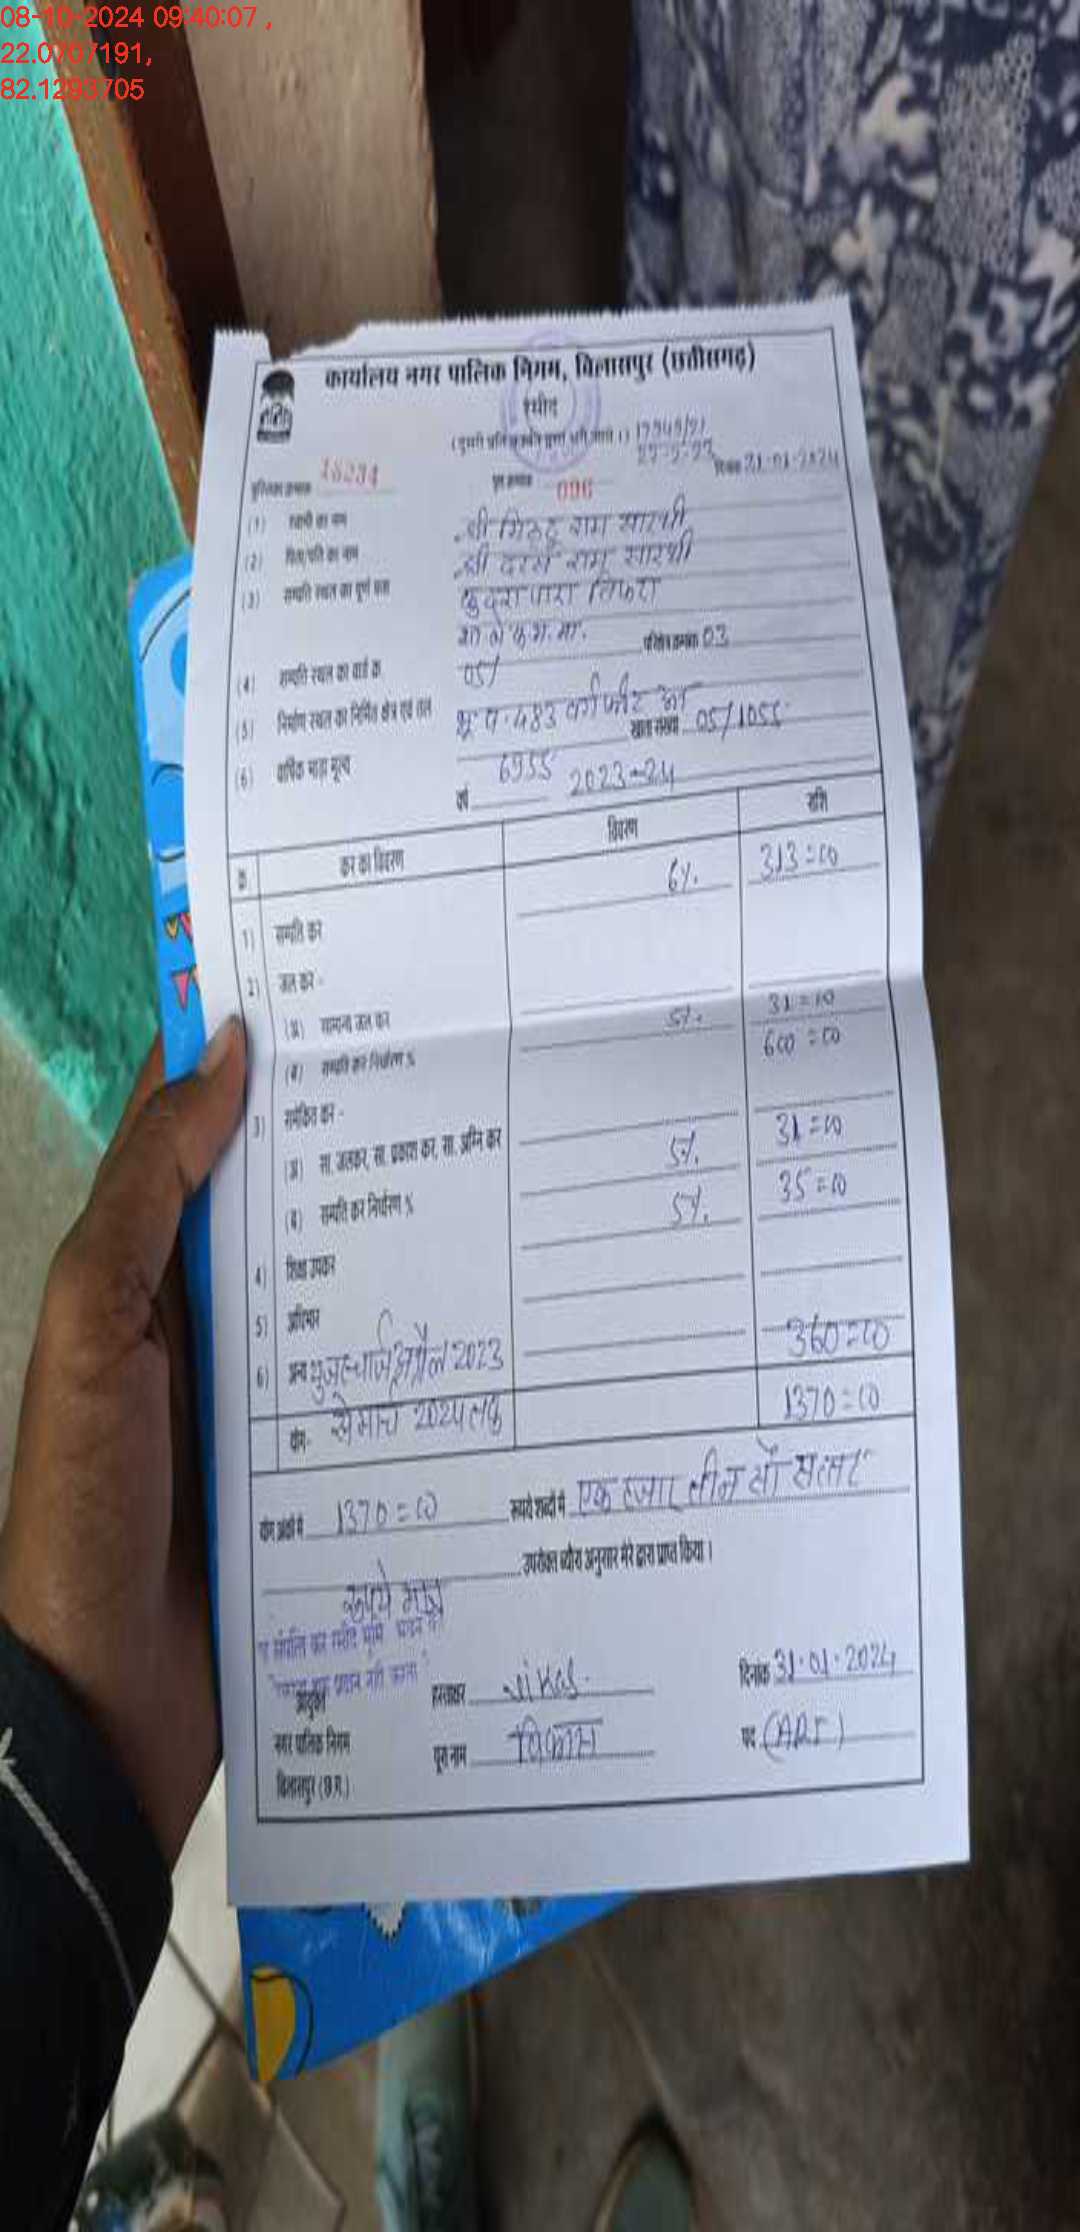 08-10-2024 09:40:07 ,
22.0707191,
82.1293705
कार्यालय नगर पालिक निगम, बिलासपुर (छत्तीसगढ़)
रसीद
दिनांक 31-01-2024
पुस्तिका क्रमांक 18234
पृष्ठ क्रमांक 096
(1) स्वामी का नाम श्री राम सारथी
(2) पिता/पति का नाम श्री राम सारथी
(3) सम्पत्ति स्थल का पूर्ण पता कुदुरापारा तिफरा
परिक्षेत्र क्रमांक 03
(4) सम्पत्ति स्थल का वार्ड क्र. 05
(5) निर्माण स्थल का निर्मित क्षेत्र एवं तल 483 वर्गफीट
खाता संख्या 05/1055
(6) वार्षिक भाड़ा मूल्य 6955
वर्ष 2023-24
क्र. कर का विवरण विवरण राशि
1) सम्पत्ति कर 6%. 313=00
2) जल कर -
(अ) सामान्य जल कर
(ब) सम्पत्ति कर निर्धारण % 5%. 31=00
600=00
3) समेकित कर -
(अ) सा. जलकर, सा. प्रकाश कर, सा. अग्नि कर
(ब) सम्पत्ति कर निर्धारण % 5%. 31=00
5%. 35=00
4) शिक्षा उपकर
5) अधिभार
6) अन्य यूजरचार्ज अप्रैल 2023 360=00
से मार्च 2024 तक
योग- 1370=00
योग अंकों में 1370=00 रूपये शब्दों में एक हजार तीन सौ सत्तर
रूपये मात्र उपरोक्त ब्यौरा अनुसार मेरे द्वारा प्राप्त किया।
आयुक्त
नगर पालिक निगम
बिलासपुर (छ.ग.)
हस्ताक्षर Vikas. दिनांक 31.01.2024
पूरा नाम विकास पद (ARI)